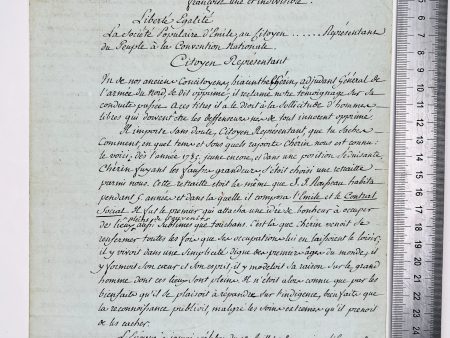 française une et indivisible.
Liberté Egalité
La Société Populaire d'Emile, au Citoyen ........ Représentant
du Peuple à la Convention Nationale.
Citoyen Representant
Un de nos anciens Concitoyens, Chérin, adjudant Général de
l'armée du Nord, se dit opprimé; il réclame notre témoignage sur sa
conduite passée. A ces titres il a le droit à la sollicitude d'hommes
libres qui doivent être les deffenseurs de tout innocent opprimé.
Il importe sans doute, Citoyen Représentant, que tu saches
Comment, en quel tems et sous quels rapports Chérin nous est connu.
le voici; dès l'année 1785. jeune encore, et dans une position séduisante,
Chérin fuyant les fausses grandeurs s'étoit choisi une retraitte
parmi nous. Cette retraitte étoit la même que J. J. Rousseau habita
pendant 5 années et dans laquelle il composa l'Emile et le Contrat
Social. Il fut le premier qui attacha une idée de bonheur à occuper
des lieux aussi sublimes que touchans. c'est là que Chérin venoit se
renfermer toutes les fois que ses occupations lui en laissoient le loisir;
il y vivoit dans une simplicité digne des premiers âges du monde; il
y formoit son cœur et son esprit, il y modeloit sa raison sur le grand
homme dont ces lieux sont pleins. Il n'étoit alors connu que par les
bienfaits qu'il se plaisoit à répandre sur l'indigence, bienfaits que
la reconnoissance publioit, malgré les soins extrêmes qu'il prenoit
de les cacher.